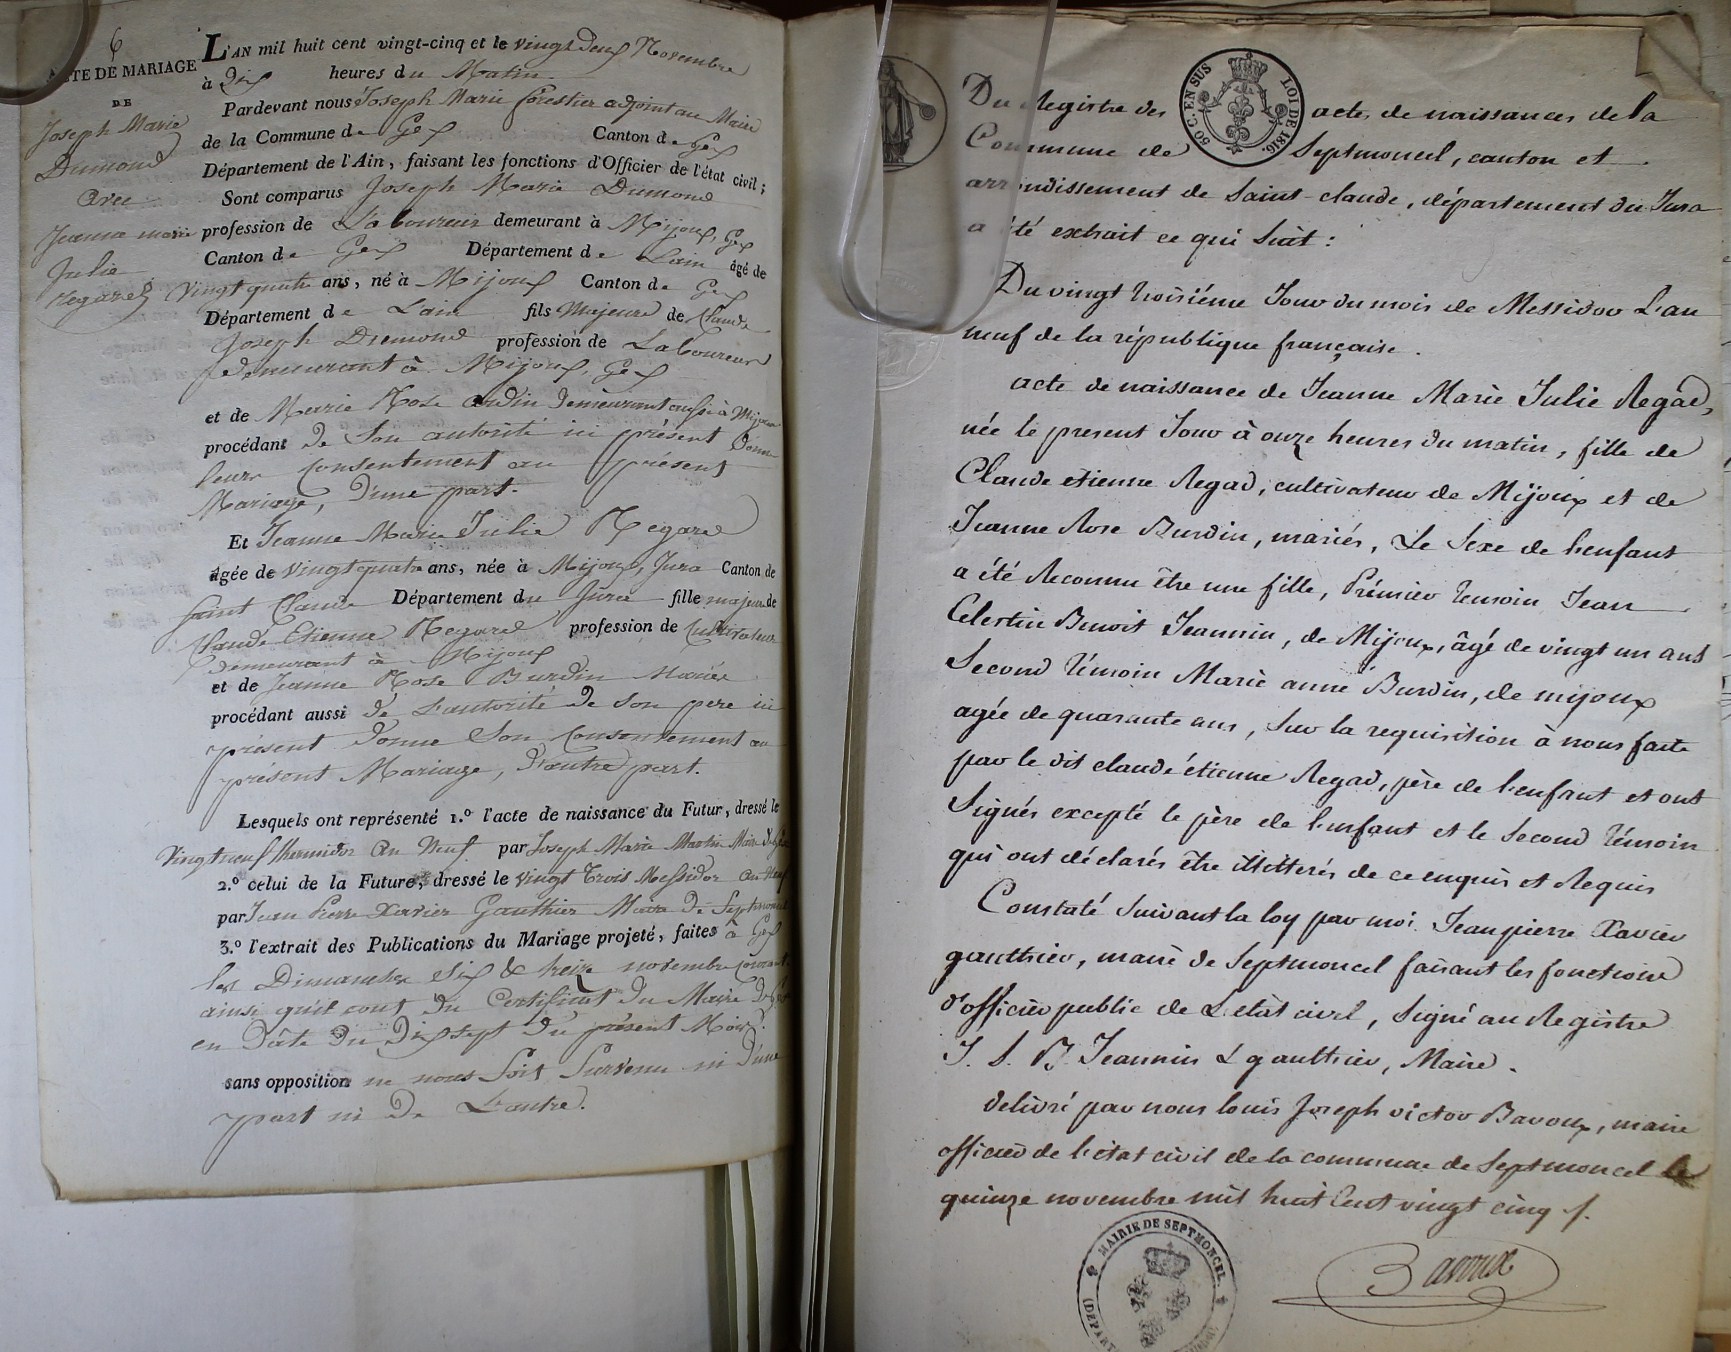 6
ACTE DE MARIAGE
DE
Joseph Marie
Dumond
Avec
Jeanne marie
Julie
Regard
L'AN mil huit cent vingt-cinq et le vingt deux Novembre
à Dix heures du Matin
Pardevant nous Joseph Marie forestier adjoint au Maire
de la Commune de Gex Canton de Gex
Département de l'Ain, faisant les fonctions d'Officier de l'état civil;
Sont comparus Joseph Marie Dumond
profession de Laboureur demeurant à Mijoux, Gex
Canton de Gex Département de Lain âgé de
Vingt quatre ans, né à Mijoux Canton de Gex
Département de Lain fils Majeure de Claude
Joseph Dumond profession de Laboureur
demeurant à Mijoux, Gex
et de Marie Rose demeurant aussi à Mijoux
procédant de Son autorité ici présent Donne
leurs Consentement au présent
Mariage, d'une part.
Et Jeanne Marie Julie Regard
âgée de Vingt quatre ans, née à Mijoux, Jura Canton de
Saint Claude Département du Jura fille majeure de
Claude Etienne Regard profession de Cultivateur
demeurant à Mijoux
et de Jeanne Rose Burdin Mariés
procédant aussi de L'autorité de Son père ici
présent donne Son Consentement au
présent Mariage, D'autre part.
Lesquels ont représenté 1.º l'acte de naissance du Futur, dressé le
Vingt neuf thermidor an Neuf par Joseph Marie Martin Maire de Gex
2.º celui de la Future, dressé le vingt Trois Messidor an Neuf
par Jean Pierre Xavier Gauthier Maire de Septmoncel
3.º l'extrait des Publications du Mariage projeté, faites à Gex
les Dimanches Six & treize novembre courant
ainsi qu'il cont du Certificat du Maire de Gex
en Date du Dix sept du présent Mois.
sans opposition ne nous Soit Survenu ni d'une
part ni de L'autre.
Du Registre des actes de naissances de la
Commune de Septmoncel, canton et
arrondissement de Saint-claude, département du Jura
a été extrait ce qui Suit:
50 C. EN SUS
LOI DE 1816.
Du vingt troisiéme Jour du mois de Messidor L'an
neuf de la république française.
acte de naissance de Jeanne Marie Julie Regad,
née le present Jour à onze heures du matin, fille de
Claude etienne Regad, cultivateur de Mijoux et de
Jeanne Rose Burdin, mariés, Le Sexe de l'enfant
a été Reconnu être une fille, Prémier temoin Jean
Celestin Benoit Jeannin, de Mijoux, âgé de vingt un ans
Second Témoin Marie anne Burdin, de mijoux
agée de quarante ans, Sur la requisition à nous faite
par le dit claude étienne Regad, père de l'enfant et ont
Signés excepté le père de l'enfant et le Second Témoin
qui ont déclarés être illitterés de ce enquis et Requis
Constaté Suivant la loy par moi Jean pierre Xavier
gauthier, maire de Septmoncel faisant les fonctions
d'officier public de L'etat civil, Signé au Registre
J. C. B. Jeannin & gauthier, Maire.
Delivré par nous louis Joseph victor Bavoux, maire
officier de l'état civil de la commune de Septmoncel le
quinze novembre mil huit Cent vingt cinq
MAIRIE DE SEPTMONCEL
Bavoux